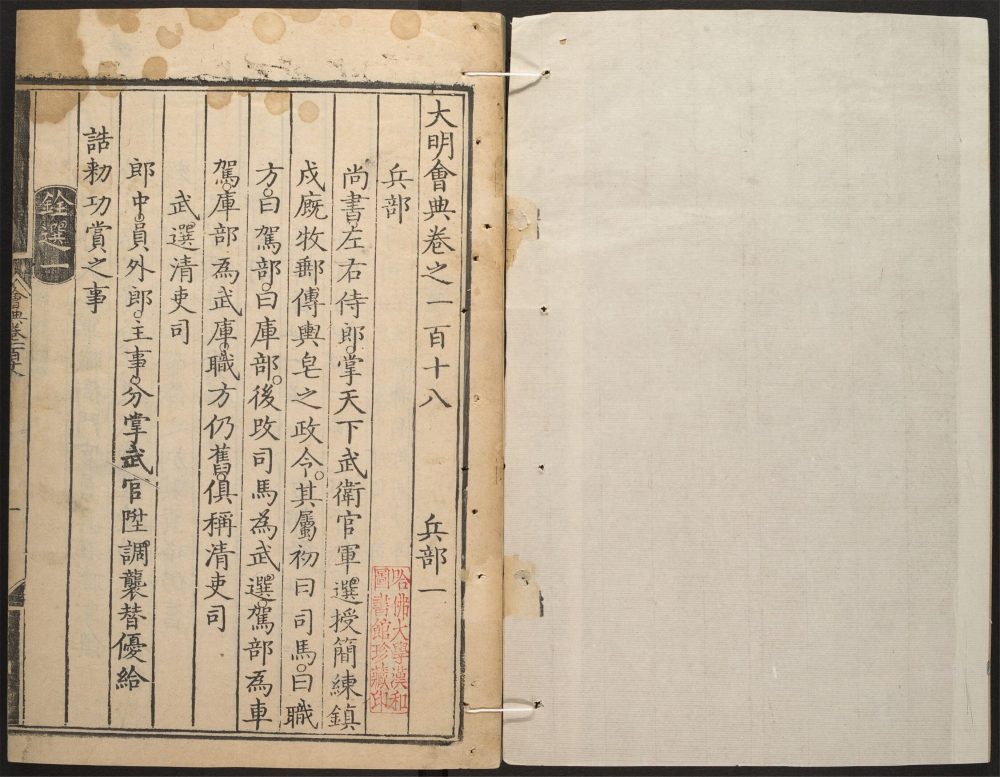 大明會典卷之一百十八 兵部一
兵部
尚書左右侍郎掌天下武衛官軍選授簡練鎮
戍厩牧郵傳輿皂之政令其屬初曰司馬曰職
方曰駕部曰庫部後改司馬為武選駕部為車
駕庫部為武庫職方仍舊俱稱清吏司
武選清吏司
郎中員外郎主事分掌武官陞調襲替優給
誥勑功賞之事
銓選一
哈佛大學漢和
圖書館珍藏印